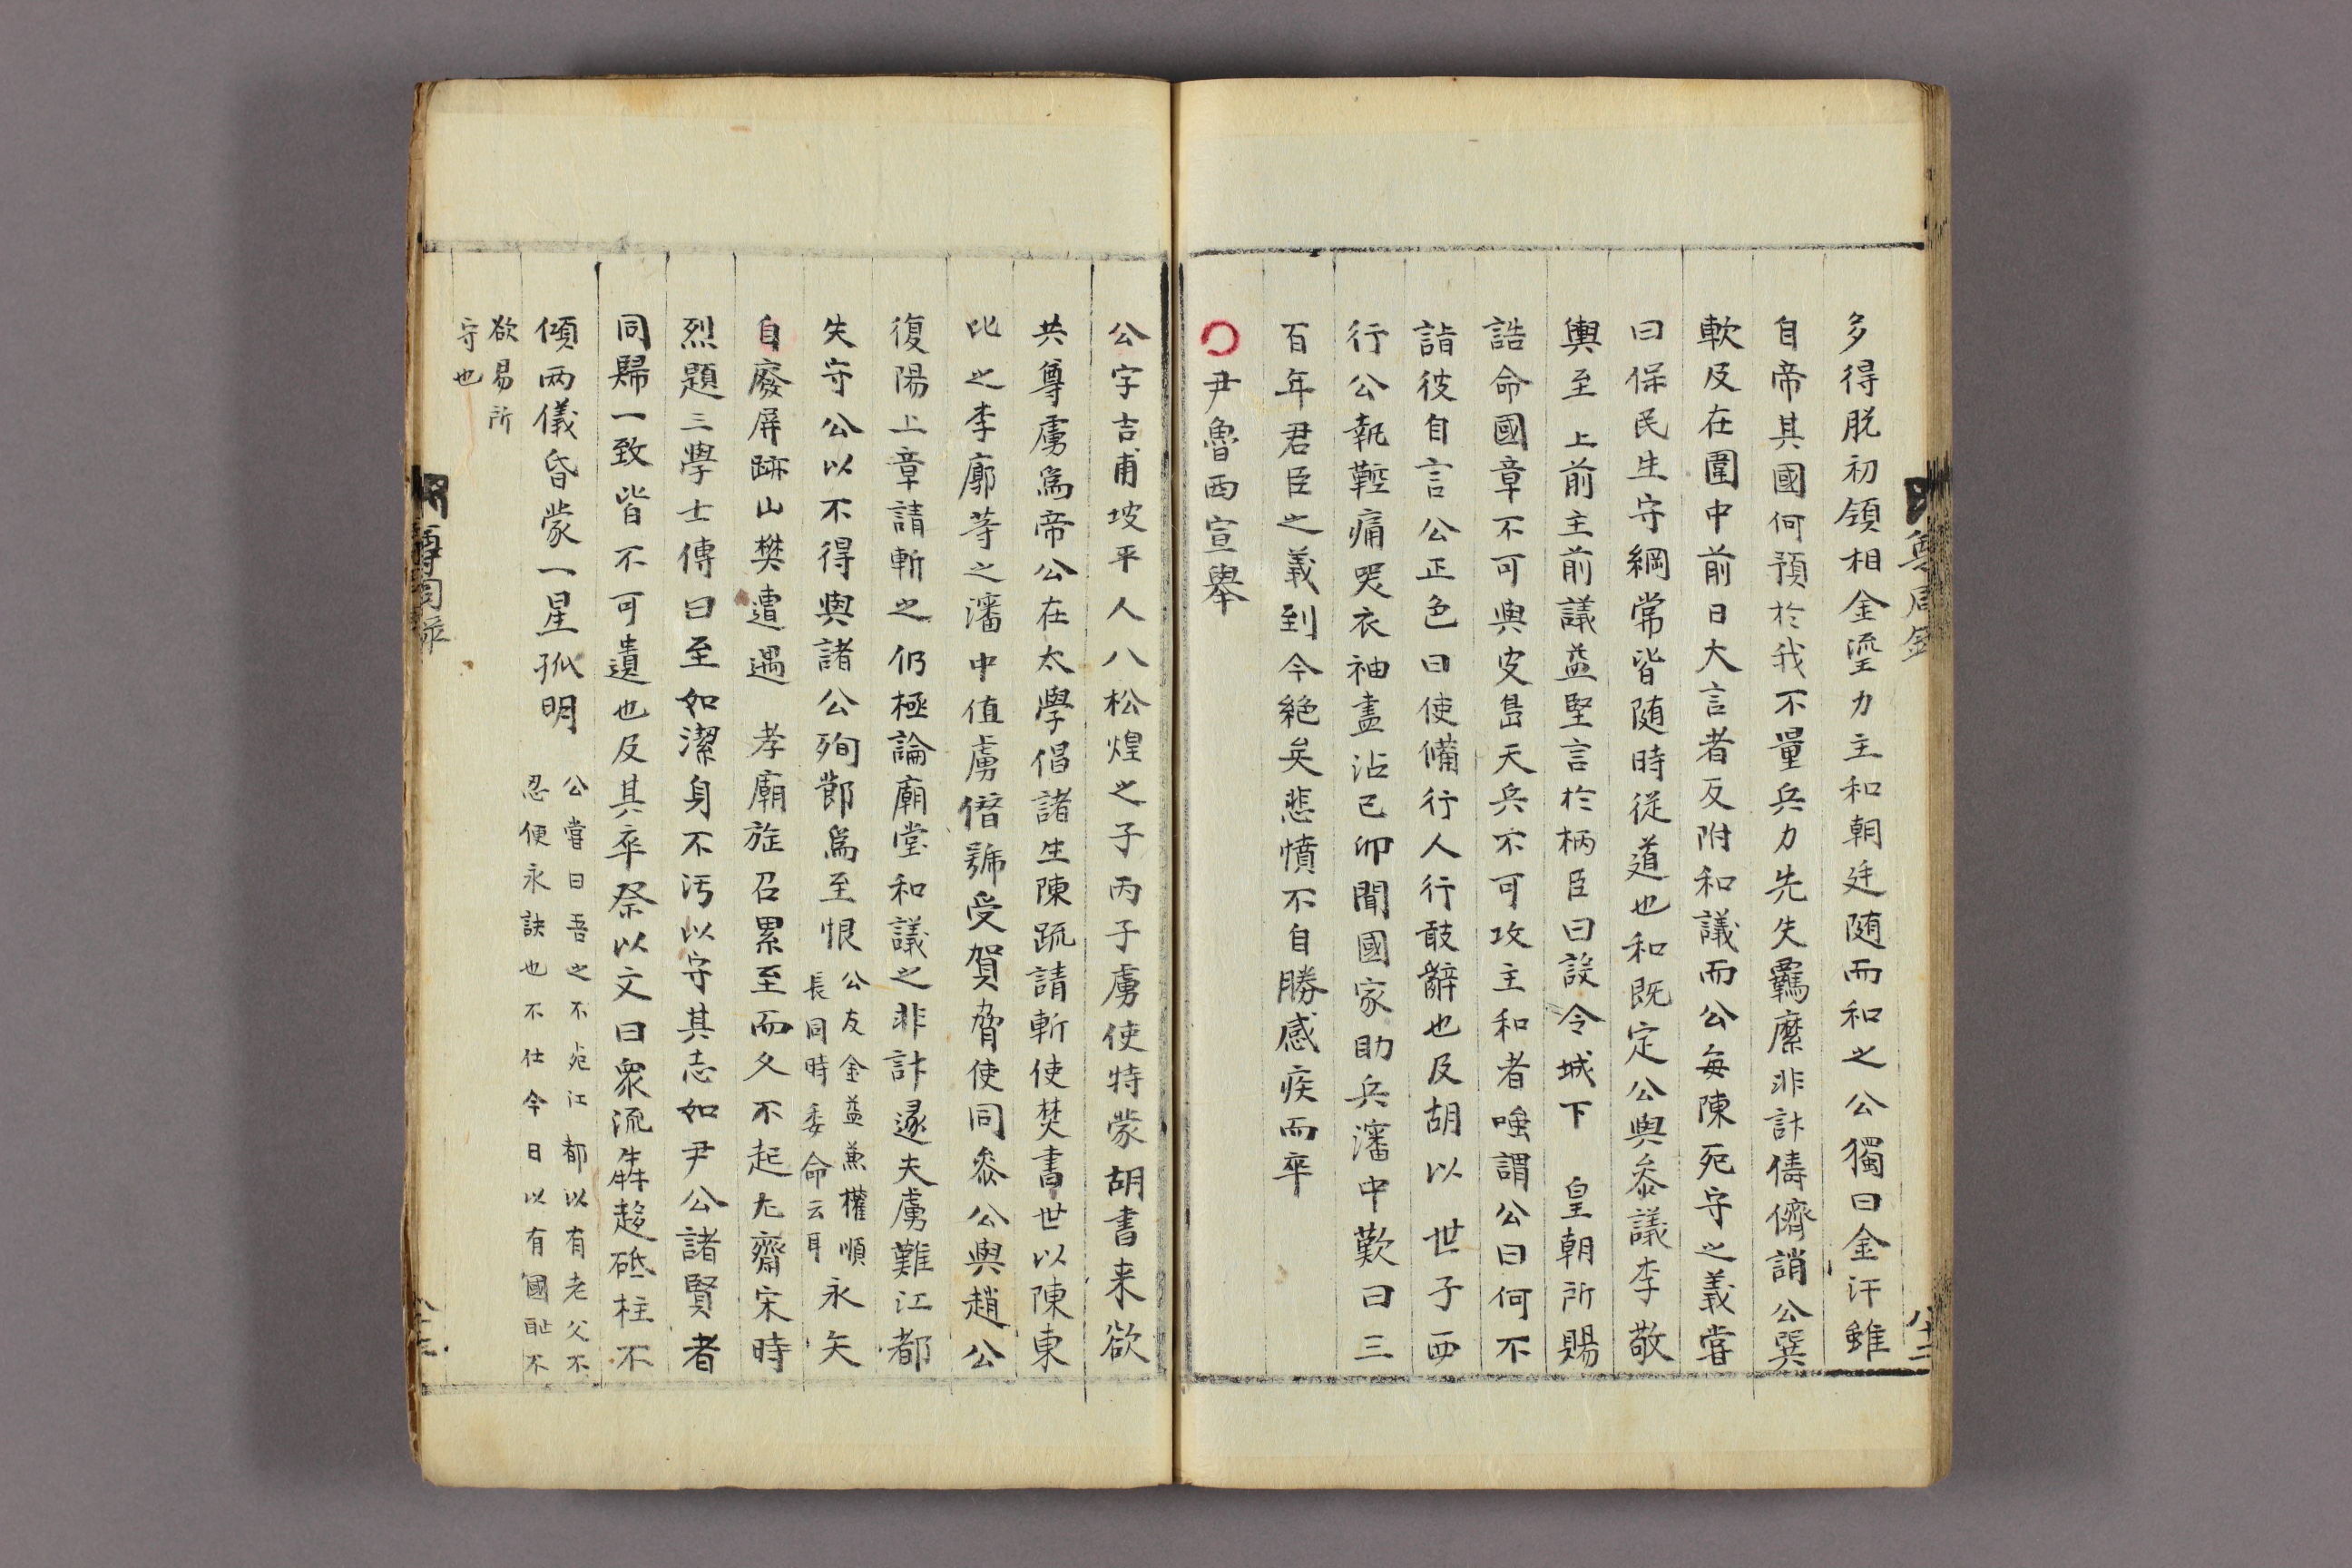 多得脱初領相金瑬力主和朝廷随而和之公獨曰金汗雖
自帝其國何預於我不量兵力先失羈縻非計儔儕誚公巽
軟及在圍中前日大言者反附和議而公每陳死守之義嘗
曰保民生守綱常皆随時從道也和既定公與叅議李敬
輿至 上前主前議益堅言於柄臣曰設令城下 皇朝所賜
誥命國章不可與皮島天兵不可攻主和者嗤謂公曰何不
詣彼自言公正色曰使備行人行敢辭也及胡以 世子西
行公執鞚痛哭衣袖盡沾己卯聞國家助兵瀋中歎曰三
百年君臣之義到今絶矣悲憤不自勝感疾而卒
尹魯西宣舉
尊周錄
八十二
公字吉甫坡平人八松煌之子丙子虜使特蒙胡書来欲
共尊虜爲帝公在太學倡諸生陳疏請斬使焚書世以陳東
比之李廓等之瀋中值虜僭號受賀脅使同叅公與趙公
復陽上章請斬之仍極論廟堂和議之非計遂夫虜難江都
失守公以不得與諸公殉節爲至恨 公友金益熏權順長同時委命云耳 永矢
自廢屏跡山樊遭遇 孝廟旌召累至而久不起尤齋宋時
烈題三學士傳曰至如潔身不汚以守其志如尹公諸賢者
同歸一致皆不可遺也及其卒祭以文曰衆流犇趍砥柱不
傾兩儀昏蒙一星孤明 公嘗曰吾之不死江都以有老父不忍便永訣也不仕今日以有國耻不
欲易所
守也
尊周錄